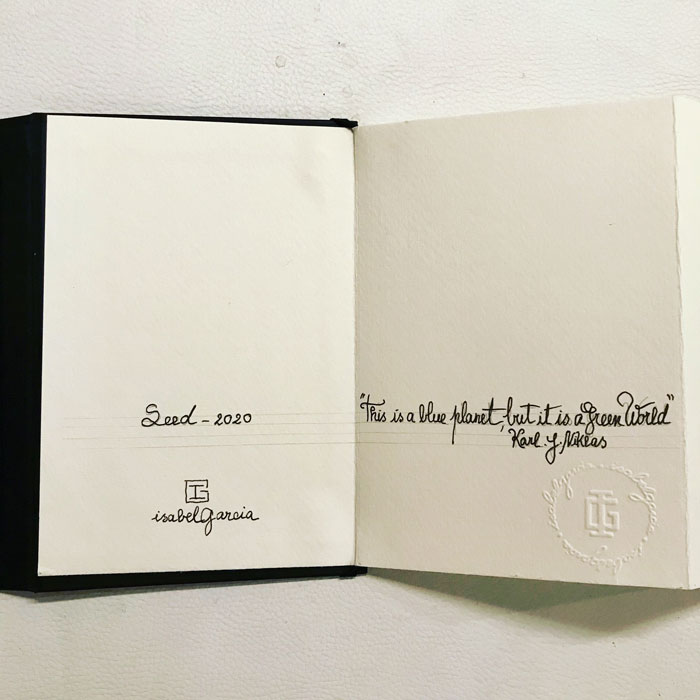 Seed - 2020
IG
isabelGarcia
"This is a blue planet, but it is a Green World"
Karl. J. Niklas
IG